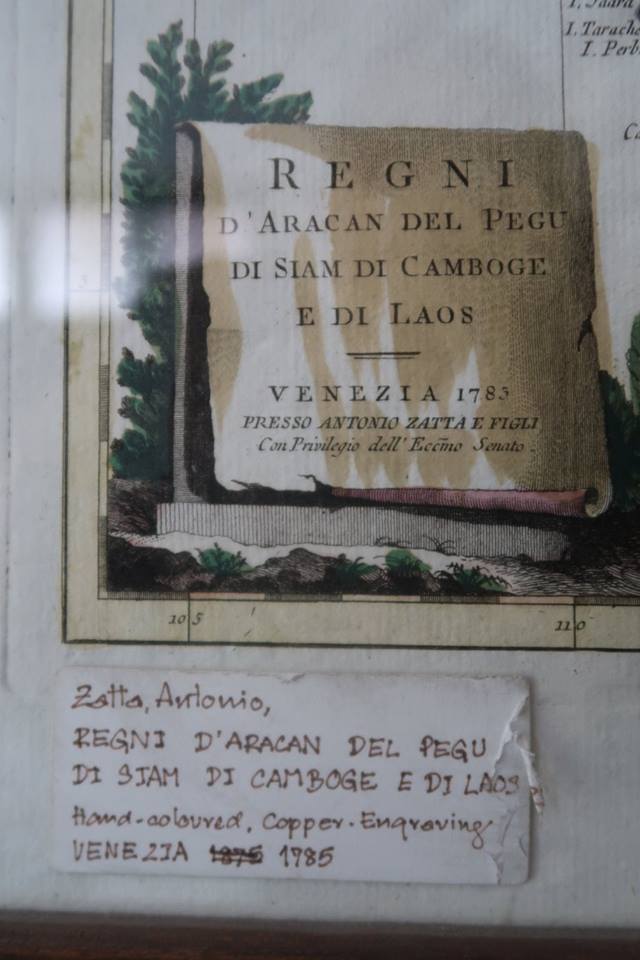 I. Tarache
I. Perb
REGNI
D'ARACAN DEL PEGU
DI SIAM DI CAMBOGE
E DI LAOS
VENEZIA 1785
PRESSO ANTONIO ZATTA E FIGLI
Con Privilegio dell' Eccm̃o Senato.
105
110
Zatta, Antonio,
REGNI D'ARACAN DEL PEGU
DI SIAM DI CAMBOGE E DI LAOS
Hand-coloured, Copper-Engraving
VENEZIA 1875 1785